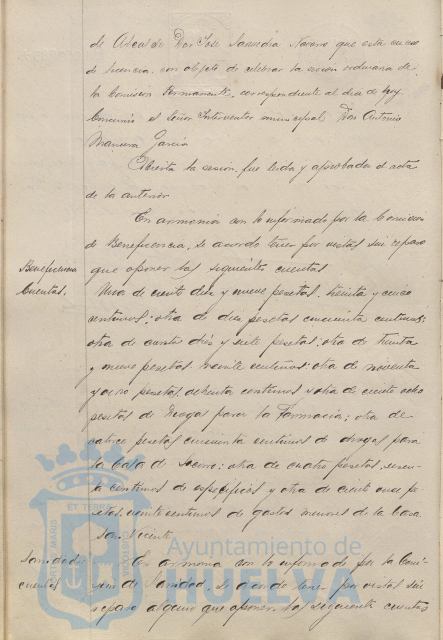 de Alcalde Don José Saavedra Navarro que está en uso
de licencia, con objeto de celebrar la sesión ordinaria de
la Comision Permanente, correspondiente al dia de hoy.
Concurrió el Señor Interventor municipal Don Antonio
Manzera García
Abierta la sesion, fue leida y aprobada el acta
de la anterior
En armonia con lo informado por la Comision
de Beneficencia, se acordó tener por vistas sin reparo
que oponer las siguientes cuentas
Beneficencia
Cuentas.
Una de ciento diez y nueve pesetas, treinta y cinco
centimos; otra de diez pesetas cincuenta centimos;
otra de ciento diez y siete pesetas; otra de treinta
y nueve pesetas veinte centimos; otra de noventa
y ocho pesetas, setenta centimos y otra de ciento ocho
pesetas de drogas para la Farmacia; otra de
catorce pesetas cincuenta centimos de drogas para
la Casa de Socorro; otra de cuatro pesetas, sesen-
ta centimos de especificos y otra de ciento once pe-
setas, veinte centimos de gastos menores de la Casa
Sanidad
cuentas
En armonia con lo informado por la Comi-
sion de Sanidad, se acordó tener por vistas sin
reparo alguno que oponer las siguientes cuentas
Ayuntamiento de
HUELVA